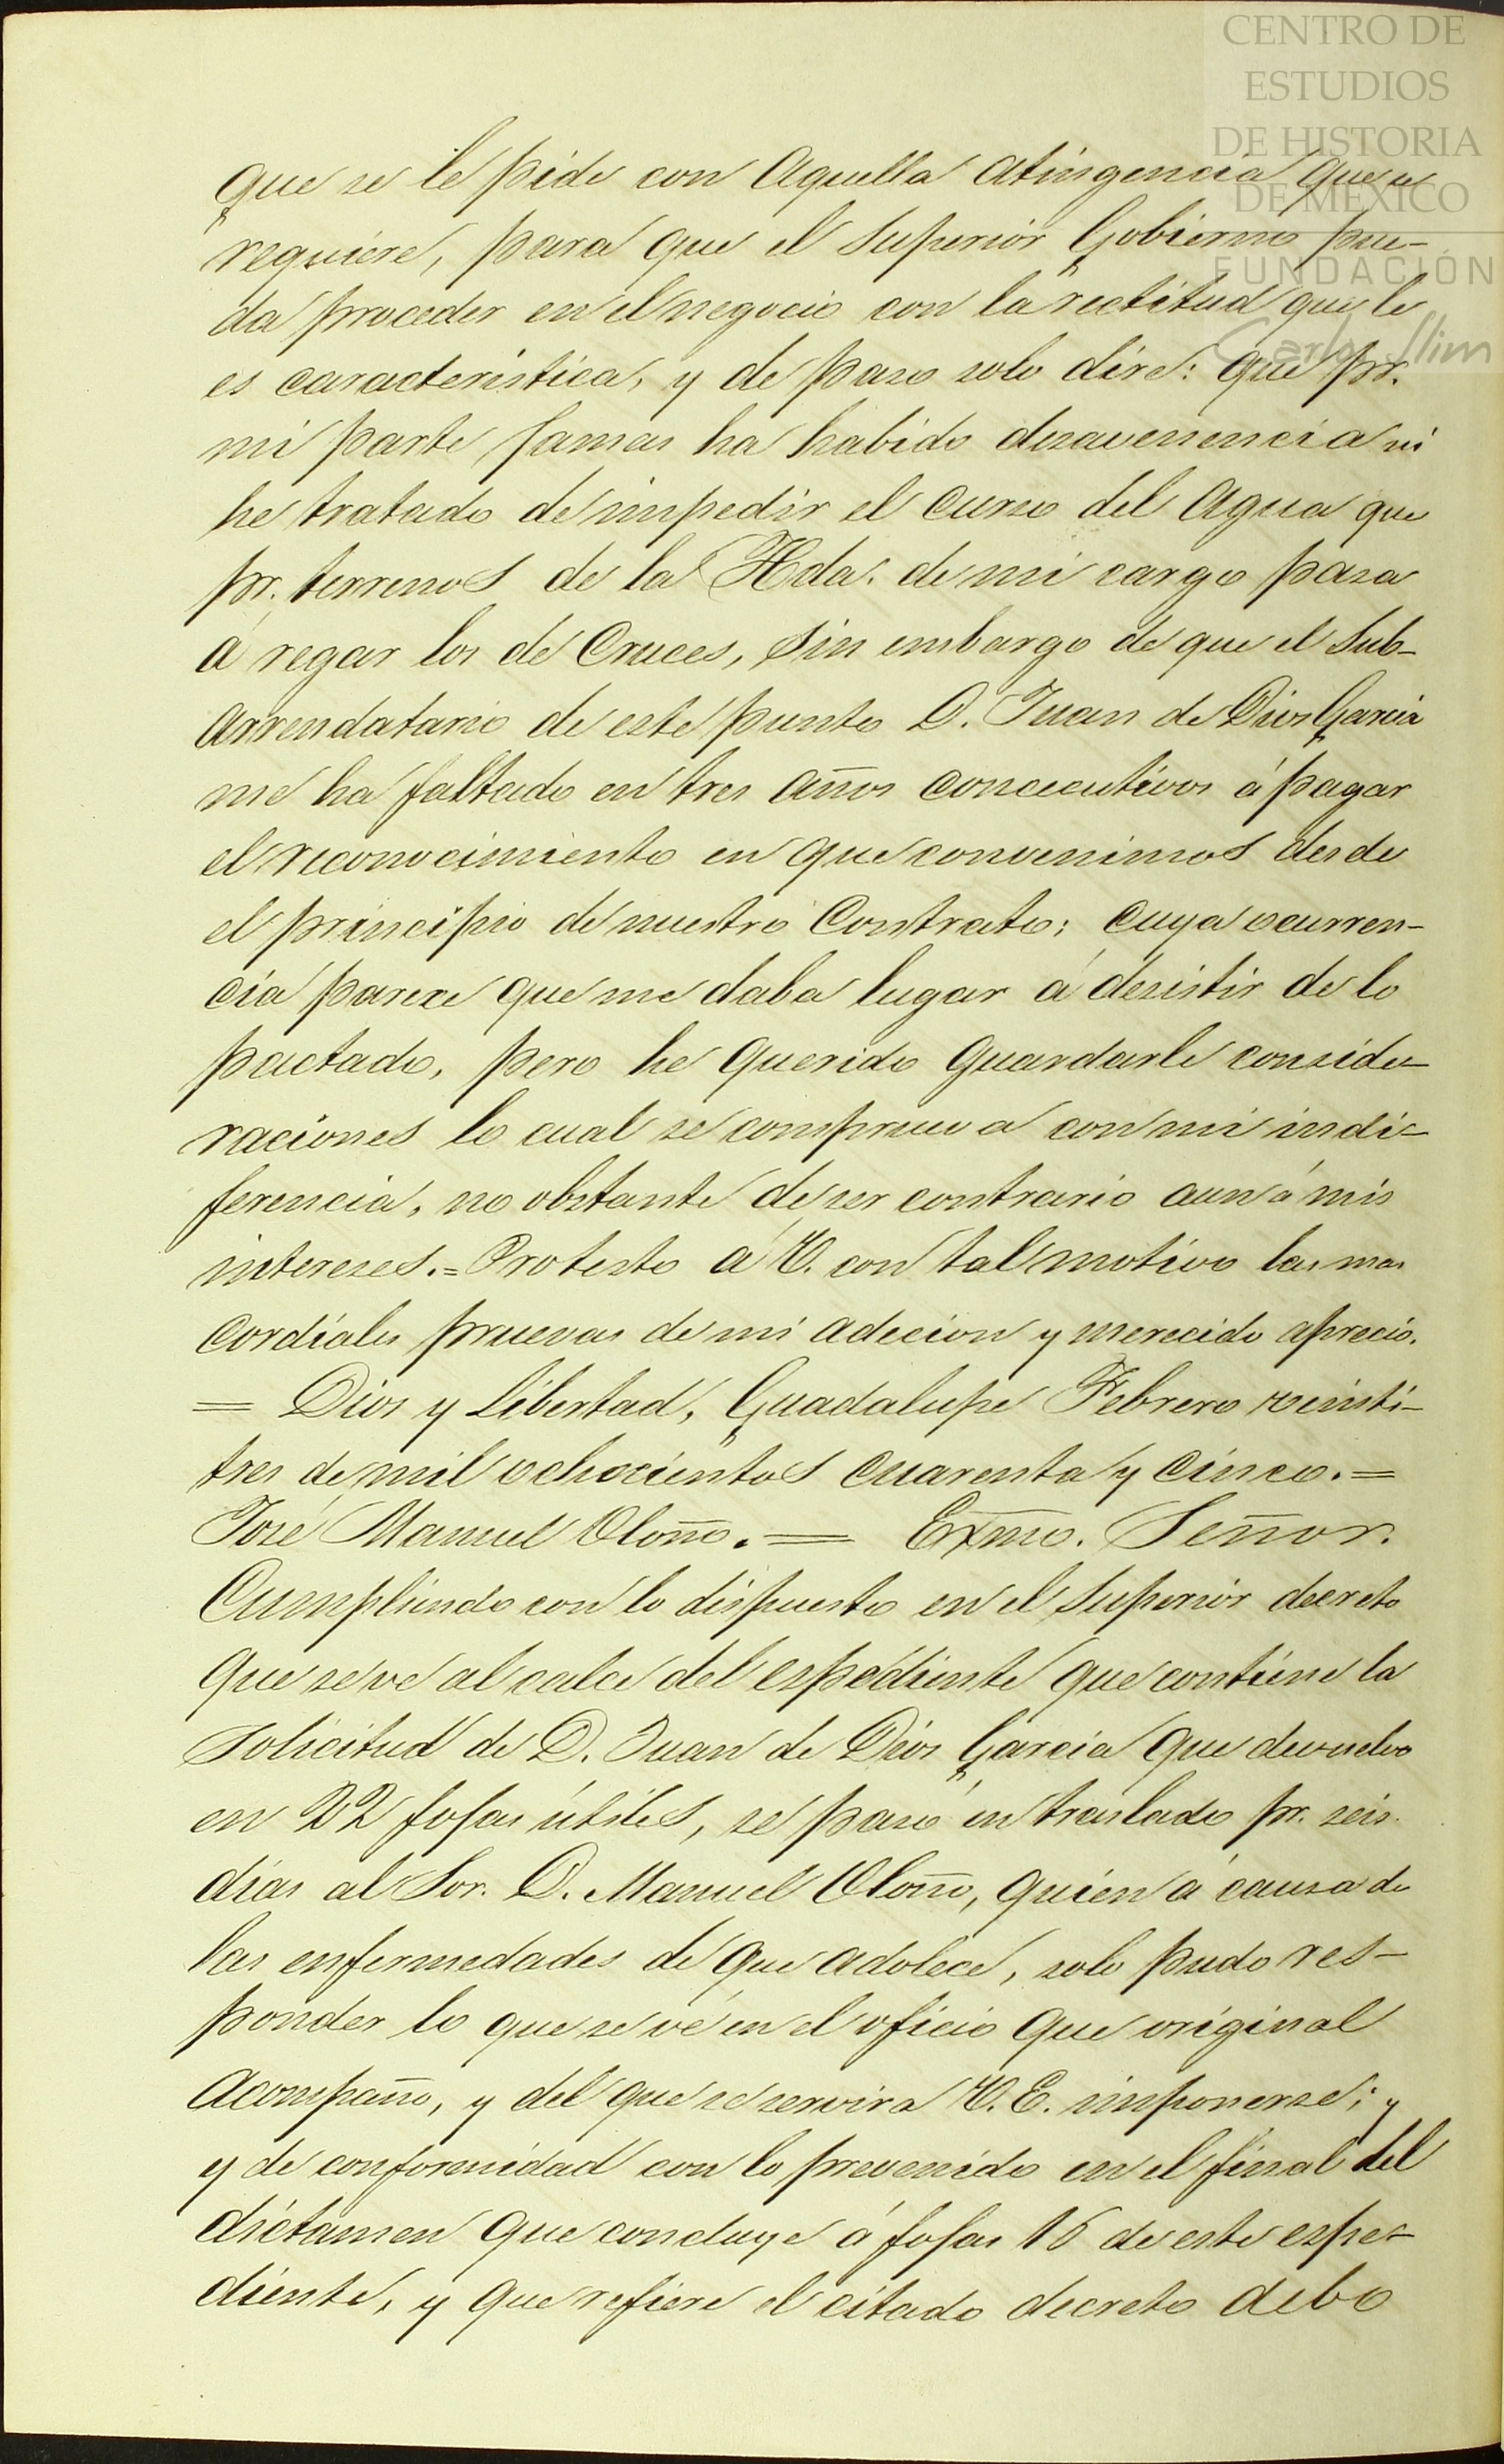 CENTRO DE
ESTUDIOS
DE HISTORIA
DE MÉXICO
FUNDACIÓN
Carlos Slim
que se le pide con aquella atingencia que se
requiere, para que el Superior Gobierno pue-
da proceder en el negocio con la rectitud que le
es caracteristica, y de paso solo diré: que pr.
mi parte jamas ha habido desavenencia ni
he tratado de impedir el curso del agua que
pr. terrenos de la Hda. de mi cargo pasa
á regar los de Cruces, sin embargo de que el Sub-
arrendatario de este punto D. Juan de Dios Garcia
me ha faltado en tres años concecutivos á pagar
el reconocimiento en que convenimos desde
el principio de nuestro Contrato; cuya ocurren-
cia parece que me daba lugar á desistir de lo
pactado, pero he querido guardarle conside-
raciones lo cual se comprueva con mi indi-
ferencia, no obstante de ser contrario aun á mis
intereses.= Protesto á V. con tal motivo las mas
cordiales pruevas de mi adecion y merecido aprecio.
= Dios y Libertad, Guadalupe Febrero veinti-
tres de mil ochocientos cuarenta y cinco.=
José Manuel Oloño. = Exmo. Señor.
Cumpliendo con lo dispuesto en el Superior decreto
que se ve al calce del espediente que contiene la
solicitud de D. Juan de Dios Garcia que devuelvo
en 22 fojas útiles, se pasó en traslado pr. seis
dias al Sor. D. Manuel Oloño, quien á causa de
las enfermedades de que adolece, solo pudo res-
ponder lo que se vé en el oficio que original
acompaño, y del que se servira V. E. imponerse; y
y de conformidad con lo prevenido en el final del
dictamen que concluye á fojas 16 de este espe-
diente, y que refiere el citado decreto debo